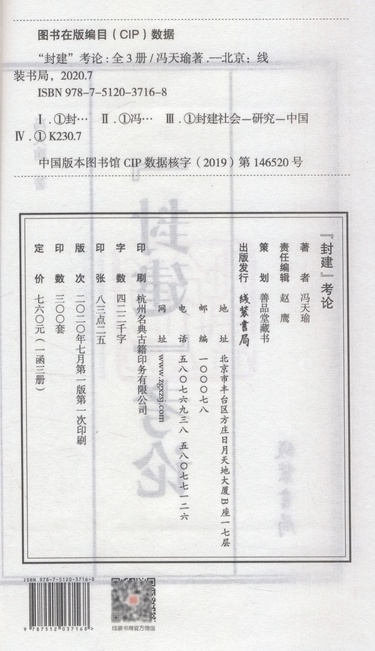 图书在版编目（CIP）数据
“封建”考论：全3册/冯天瑜著.—北京：线
装书局，2020.7
ISBN 978-7-5120-3716-8
Ⅰ.①封… Ⅱ.①冯… Ⅲ.①封建社会—研究—中国
Ⅳ.①K230.7
中国版本图书馆CIP数据核字（2019）第146520号
『封建』考论
著者 冯天瑜
责任编辑 赵鹰
策划 善品堂藏书
出版发行 线装书局
地址 北京市丰台区方庄日月天地大厦B座一七层
邮编 一〇〇〇七八
电话 五八〇七六九三八 五八〇七七一二六
网址 www.zgxzsj.com
印刷 杭州名典古籍印务有限公司
字数 四二二千字
印张 八三点二五
版次 二〇二〇年七月第一版第一次印刷
印数 三〇〇套
定价 七六〇元（一函三册）
ISBN 978-7-5120-3716-8
9 787512 037168
线装书局官方微信